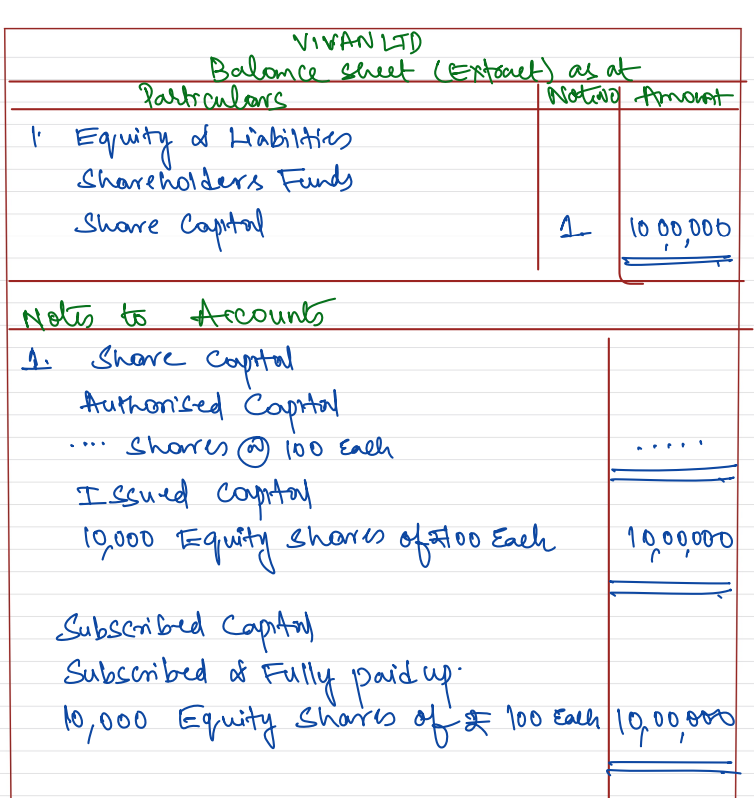 VIVAN LTD
Balance sheet (Extract) as at
Particulars Note No Amount
1. Equity & Liabilities
Shareholders Funds
Share Capital 1 10,00,000
Notes to Accounts
1. Share Capital
Authorised Capital
.... Shares @ 100 Each .....
Issued Capital
10,000 Equity shares of ₹100 Each 10,00,000
Subscribed Capital
Subscribed & Fully paid up.
10,000 Equity Shares of ₹ 100 Each 10,00,000